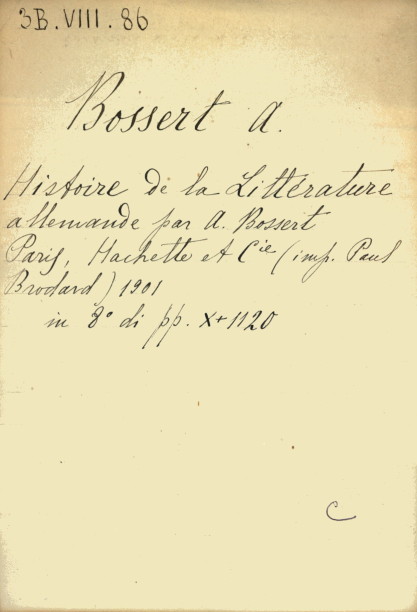 3B.VIII.86
Bossert A.
Histoire de la Littérature
allemande par A. Bossert
Paris, Hachette et Cie (imp. Paul
Brodard) 1901
in 8° di pp. X+1120
C